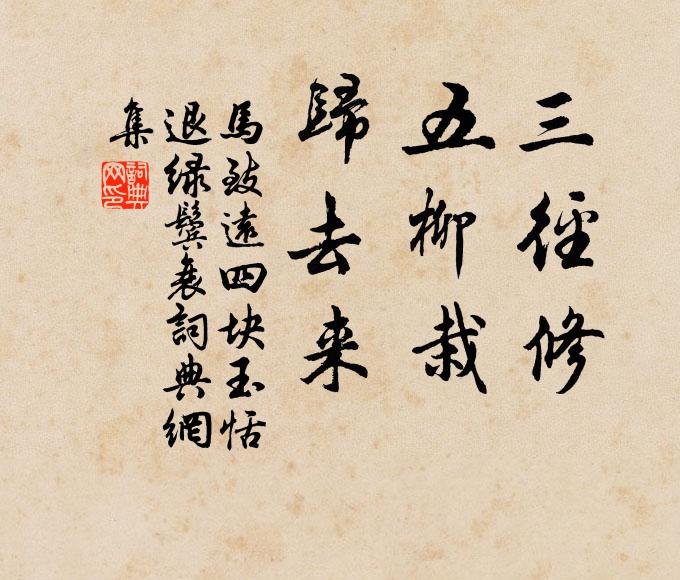 三徑修
五柳栽
歸去来
馬致遠四块玉恬
退绿鬓衰詞典網
集
詞典
网印